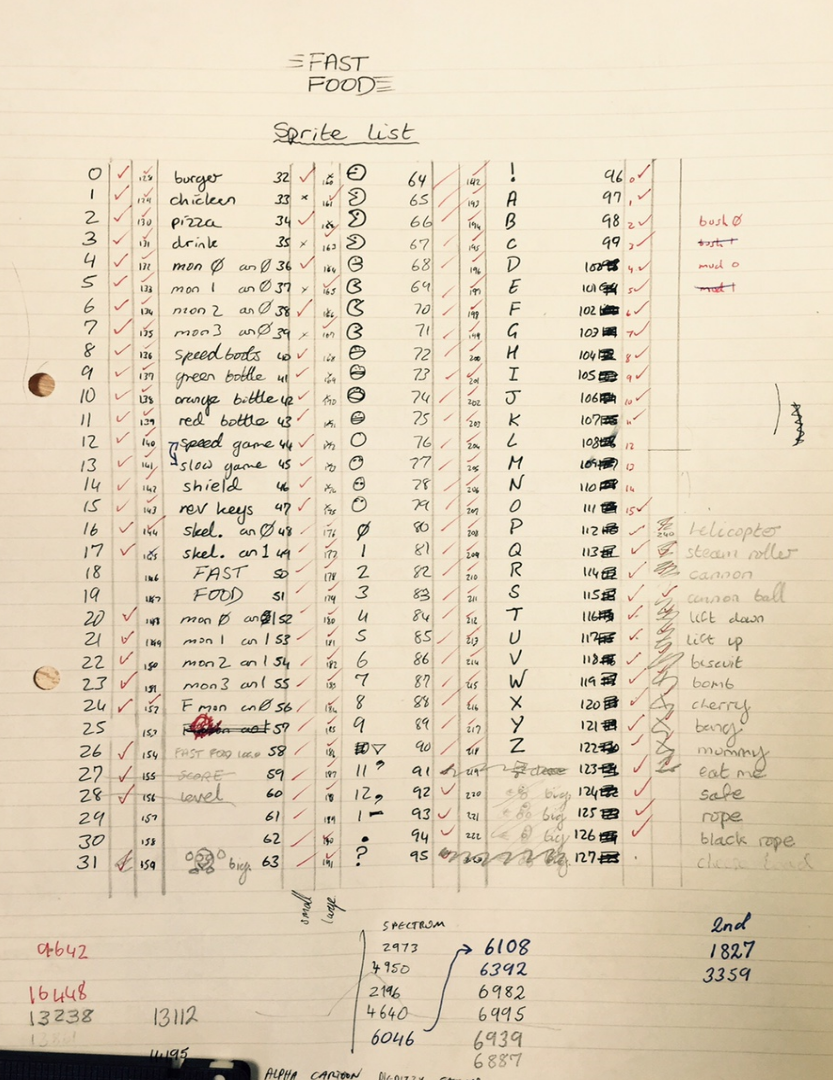 FAST
FOOD
Sprite list
0 128 burger 32 160 64 192 ! 96 0
1 129 chicken 33 161 65 193 A 97 1
2 130 pizza 34 162 66 194 B 98 2 bush 0
3 131 drink 35 163 67 195 C 99 3 bush 1
4 132 mon 0 an 0 36 164 68 196 D 100 4 mud 0
5 133 mon 1 an 0 37 165 69 197 E 101 5 mud 1
6 134 mon 2 an 0 38 166 70 198 F 102 6
7 135 mon 3 an 0 39 167 71 199 G 103 7
8 136 speed boots 40 168 72 200 H 104 8
9 137 green bottle 41 169 73 201 I 105 9
10 138 orange bottle 42 170 74 202 J 106 10
11 139 red bottle 43 171 75 203 K 107 11
12 140 speed game 44 172 76 204 L 108 12
13 141 slow game 45 173 77 205 M 109 13
14 142 shield 46 174 78 206 N 110 14
15 143 rev keys 47 175 79 207 O 111 15
16 144 skel. an 0 48 176 0 80 208 P 112 240 helicopter
17 145 skel. an 1 49 177 1 81 209 Q 113 steam roller
18 146 FAST 50 178 2 82 210 R 114 cannon
19 147 FOOD 51 179 3 83 211 S 115 cannon ball
20 148 mon 0 an 1 52 180 4 84 212 T 116 lift down
21 149 mon 1 an 1 53 181 5 85 213 U 117 lift up
22 150 mon 2 an 1 54 182 6 86 214 V 118 biscuit
23 151 mon 3 an 1 55 183 7 87 215 W 119 bomb
24 152 F mon an 0 56 184 8 88 216 X 120 cherry
25 153 57 185 9 89 217 Y 121 bang
26 154 FAST FOOD logo 58 186 90 218 Z 122 mummy
27 155 SCORE 59 187 11 ? 91 219 123 eat me
28 156 level 60 188 12 , 92 220 big 124 safe
29 157 61 189 1 - 93 221 big 125 rope
30 158 62 190 . 94 222 big 126 black rope
31 159 big 63 191 ? 95 127
small large
SPECTRUM 2nd
9642 2973 6108 1827
4950 6392 3359
16448 2196 6982
13238 13112 4640 6995
6046 6939
4195 6887
ALPHA CARTOON